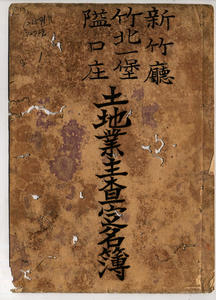 新竹廳
竹北一堡
隘口庄
土地業主查定名簿